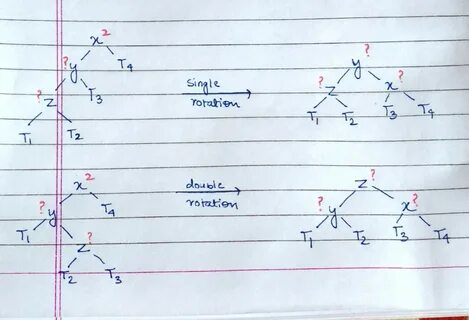 x 2
? y T4
? z T3
T1 T2
single
rotation
? y
? z x ?
T1 T2 T3 T4
x 2
? y T4
T1 z ?
T2 T3
double
rotation
z ?
? y x ?
T1 T2 T3 T4